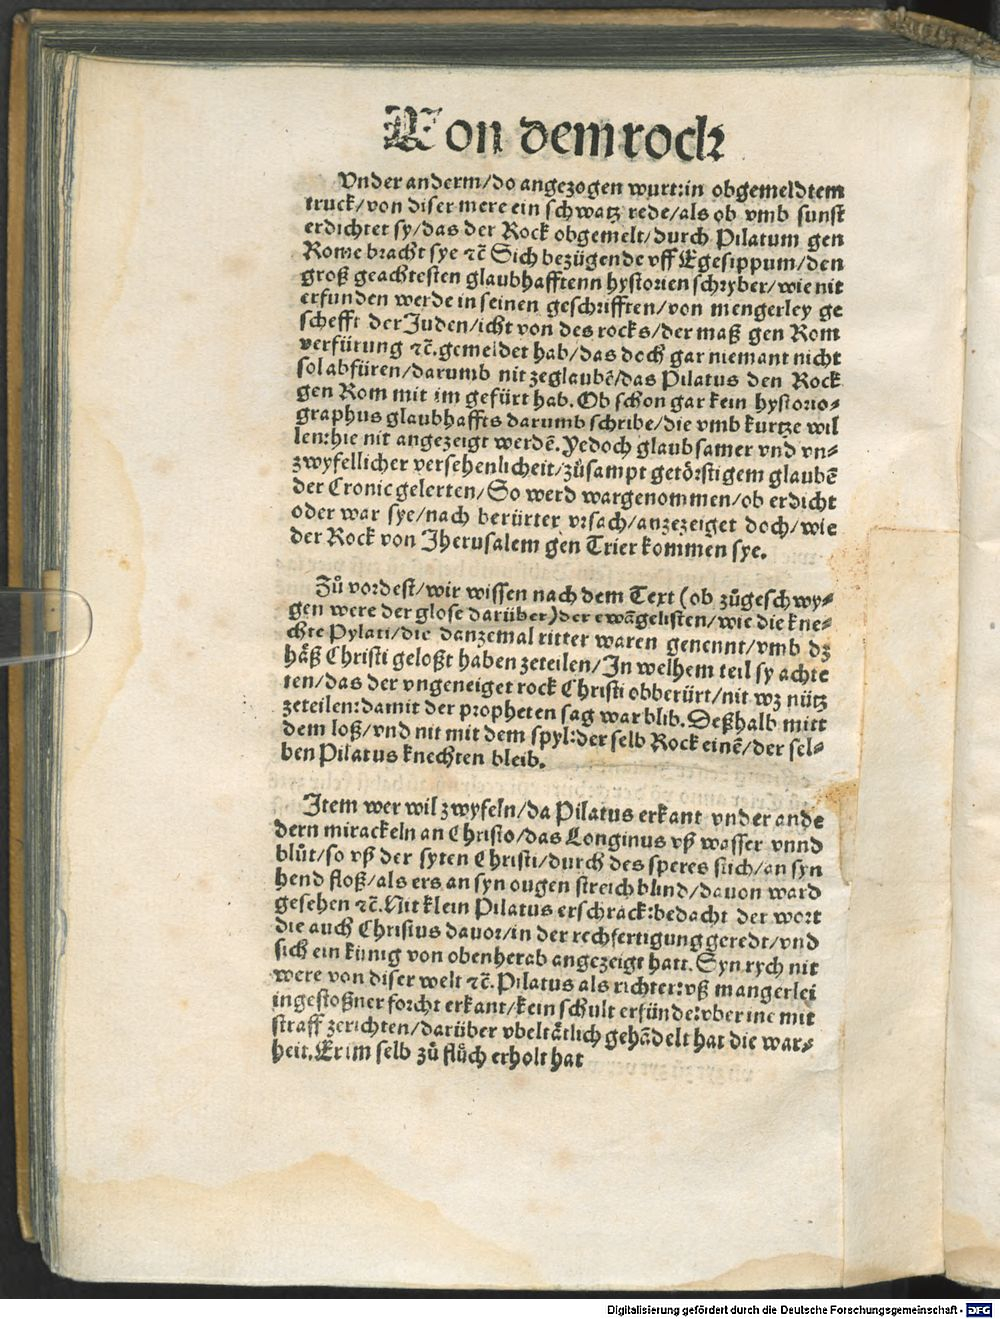 Von dem rock
Vnder anderm/do angezogen wurt:in obgemeldtem
truck/von diser mere ein schwatz rede/als ob vmb sunst
erdichtet sy/das der Rock obgemelt/durch Pilatum gen
Rome bracht sye ⁊c̄ Sich bezügende vff Egesippum/den
groß geachtesten glaubhafftenn hystorien schryber/wie nit
erfunden werde in seinen geschrifften/von mengerley ge
schefft der Juden/icht von des rocks/der maß gen Rom
verfürung ⁊c̄.gemeldet hab/das doch gar niemant nicht
sol abfüren/darumb nit zeglaubē/das Pilatus den Rock
gen Rom mit im gefürt hab. Ob schon gar kein hystorio⸗
graphus glaubhaffts darumb schribe/die vmb kurtze wil
len:hie nit angezeigt werdē. Yedoch glaubsamer vnd vn⸗
zwyfellicher versehenlicheit/zůsampt getörstigem glaubē
der Cronic gelerten/So werd wargenommen/ob erdicht
oder war sye/nach berürter vrsach/anzezeiget doch/wie
der Rock von Jherusalem gen Trier kommen sye.
Zů vordest/wir wissen nach dem Text (ob zůgeschwy⸗
gen were der glose darüber) der ewāgelisten/wie die kne⸗
chte Pylati/die danzemal ritter waren genennt/vmb dz
häß Christi geloßt haben zeteilen/In welhem teil sy achte
ten/das der vngeneiget rock Christi obberürt/nit wz nütz
zeteilen:damit der propheten sag war blib. Deßhalb mitt
dem loß/vnd nit mit dem spyl:der selb Rock einē/der sel⸗
ben Pilatus knechten bleib.
Item wer wil zwyfeln/da Pilatus erkant vnder ande
dern mirackeln an Christo/das Longinus vß wasser vnnd
blůt/so vß der syten Christi/durch des speres stich/an syn
hend floß/als ers an syn ougen streich blind/dauon ward
gesehen ⁊c̄. Nit klein Pilatus erschrack:bedacht der wort
die auch Christus dauor/in der rechfertigung geredt/vnd
sich ein künig von obenherab angezeigt hatt. Syn rych nit
were von diser welt ⁊c̄. Pilatus als richter:vß mangerlei
ingestoßner forcht erkant/kein schult erfünde:vber ine mit
straff zerichten/darüber vbeltätlich gehādelt hat die war⸗
heit. Er im selb zů flůch erholt hat
Digitalisierung gefördert durch die Deutsche Forschungsgemeinschaft - DFG